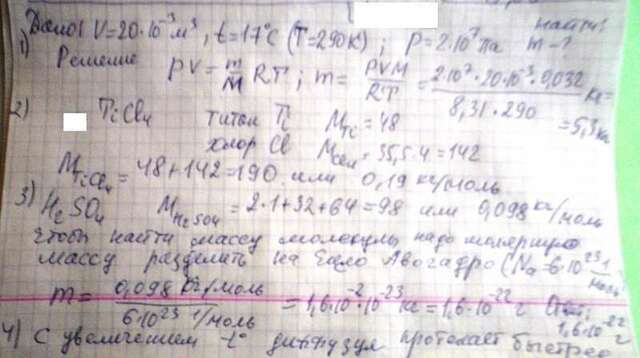 найти:
1) Дано: V=20·10⁻³ м³, t=17°C (T=290K); p=2·10⁷ Па m-?
Решение pV = m/M RT; m = PVM/RT = 2·10⁷·20·10⁻³·0,032/8,31·290 кг =
= 5,3 кг
2) TiCl₄ титан Ti M_Ti = 48
хлор Cl M_Cl₄ = 35,5·4 = 142
M_TiCl₄ = 48+142=190 или 0,19 кг/моль
3) H₂SO₄ M_H₂SO₄ = 2·1+32+64=98 или 0,098 кг/моль
чтобы найти массу молекулы надо молярную
массу разделить на число Авогадро (Na=6·10²³ 1/моль
m = 0,098 кг/моль / 6·10²³ 1/моль = 1,6·10⁻²·10⁻²³ кг = 1,6·10⁻²² г Ответ:
1,6·10⁻²² г
4) С увеличением t° диффузия протекает быстрее